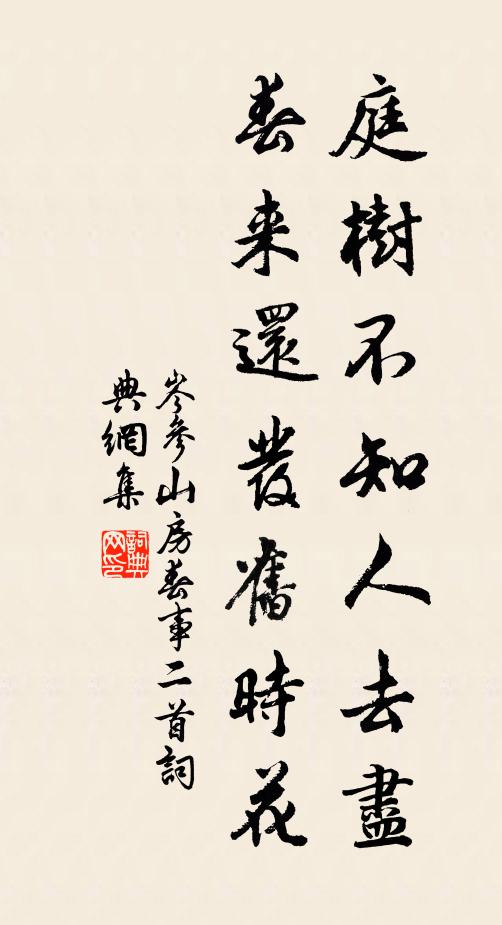 庭樹不知人去盡
春来還發舊時花
岑參山房春事二首詞
典網集
詞典网印